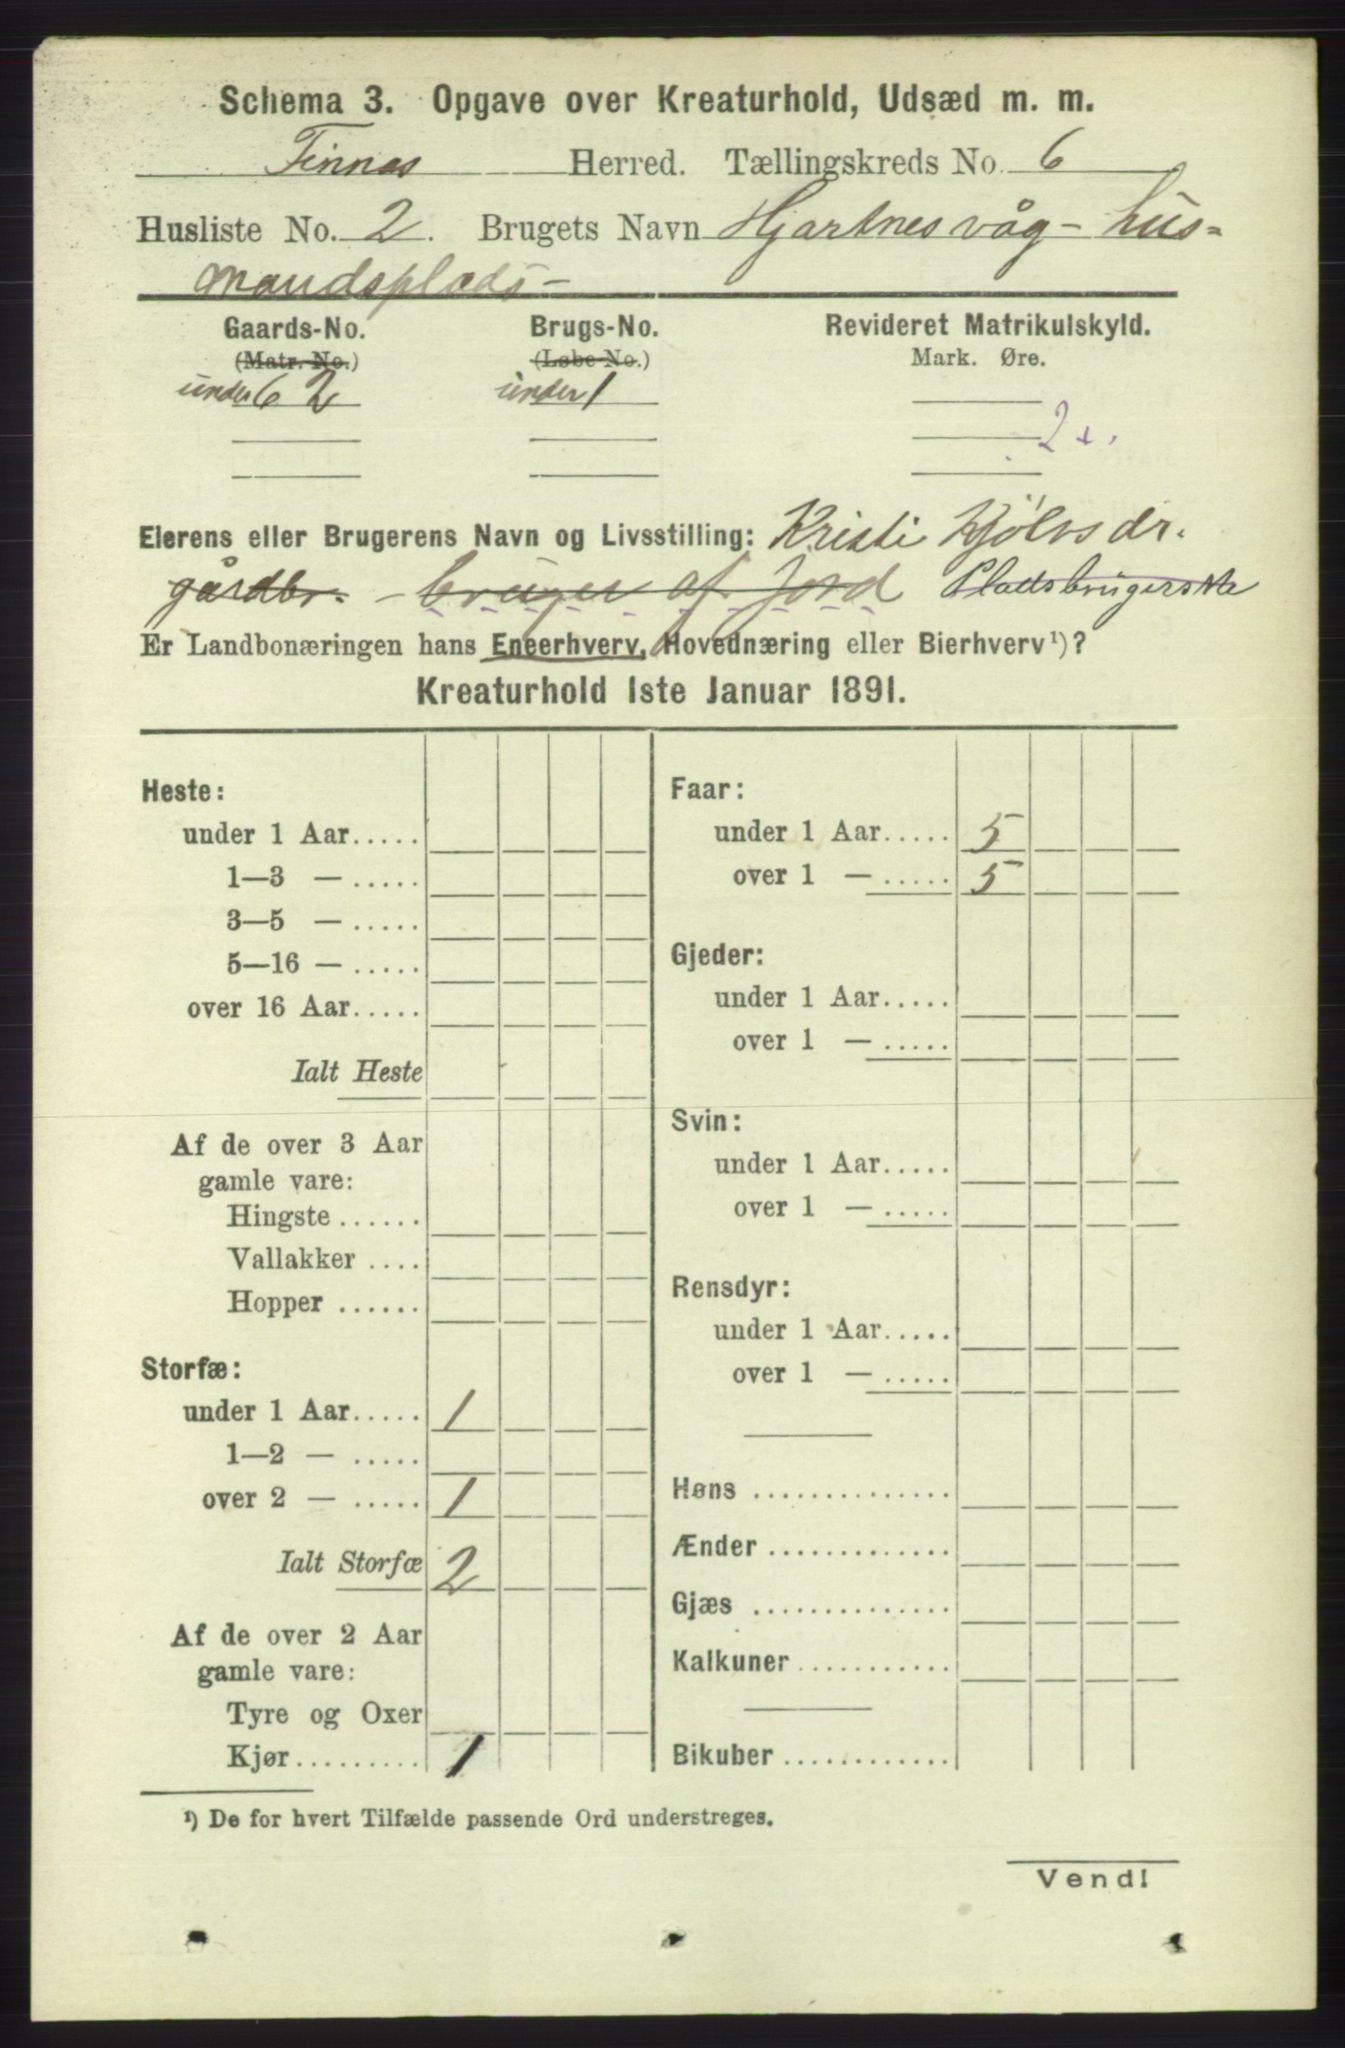 Schema 3. Opgave over Kreaturhold, Udsæd m. m.
Finnas Herred. Tællingskreds No. 6
Husliste No. 2. Brugets Navn Hjartnesvåg - hus=
mandsplads -
Gaards-No. Brugs-No. Revideret Matrikulskyld.
(Matr. No.) (Løbe No.) Mark. Øre.
under 62 under 1
2
Eierens eller Brugerens Navn og Livsstilling: Kristi Kjölvsdr.
gårdbr. - bruger af jord Pladsbrugerske
Er Landbonæringen hans Eneerhverv, Hovednæring eller Bierhverv¹)?
Kreaturhold 1ste Januar 1891.
Heste:
under 1 Aar.....
1—3 — .....
3—5 — .....
5—16 — .....
over 16 Aar.....
Ialt Heste
Af de over 3 Aar
gamle vare:
Hingste ......
Vallakker ....
Hopper ......
Storfæ:
under 1 Aar..... 1
1—2 — .....
over 2 — ..... 1
Ialt Storfæ 2
Af de over 2 Aar
gamle vare:
Tyre og Oxer
Kjør......... 1
Faar:
under 1 Aar..... 5
over 1 — ..... 5
Gjeder:
under 1 Aar.....
over 1 — .....
Svin:
under 1 Aar.....
over 1 — .....
Rensdyr:
under 1 Aar.....
over 1 — .....
Høns ..............
Ænder .............
Gjæs ..............
Kalkuner...........
Bikuber ............
¹) De for hvert Tilfælde passende Ord understreges.
Vend!